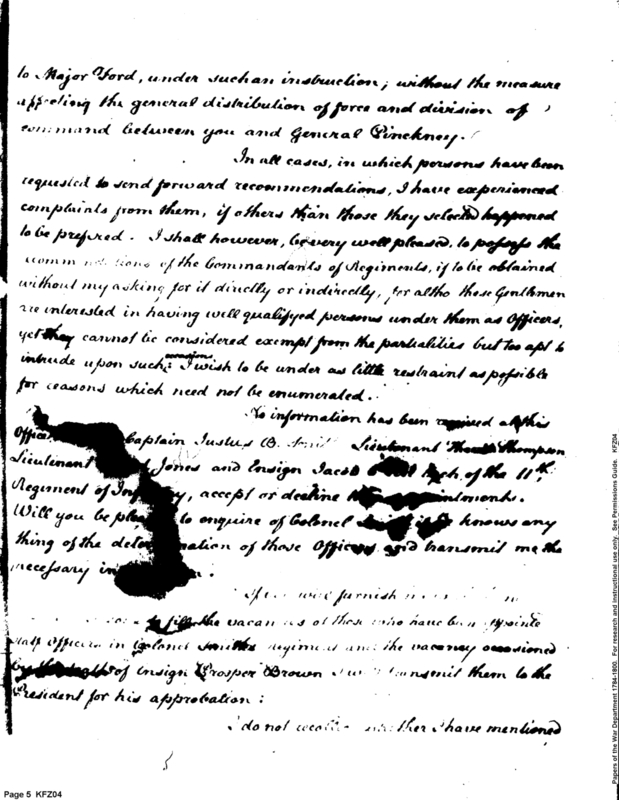 to Major Ford, under such an instruction; without the measure
affecting the general distribution of force and division of
command between you and General Pinckney.
In all cases, in which persons have been
requested to send forward recommendations, I have experienced
complaints from them, if others than those they selected happened
to be prefered. I shall however, be very well pleased, to possess the
of the Commandants of Regiments, if to be obtained
without my asking for it directly or indirectly, for altho these Gentlemen
are interested in having well qualifyed persons under them as Officers,
yet they cannot be considered exempt from the partialities but too apt to
intrude upon such occasions I wish to be under as little restraint as possible
for reasons which need not be enumerated.
No information has been received at this
Office Captain Justus B. Lieutenant Thompson
Lieutenant Jones and Ensign Jacob of the 11th
Regiment of accept or decline
Will you be to enquire of Colonel if he knows any
thing of the of those Officers and transmit me the
necessary
will furnish
to fill the vacancies of those who have been
Staff Officers in Colonel Smiths regiment and the vacancy occasioned
by the of Ensign Prosper Brown I will transmit them to the
President for his approbation:
I do not whether I have mentioned
Page 5 KFZ04
Papers of the War Department 1784-1800. For research and instructional use only. See Permissions Guide. KFZ04